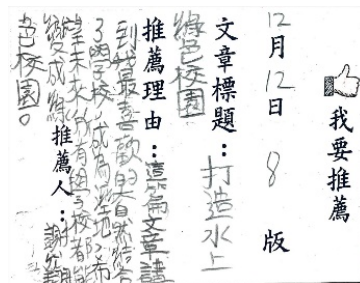 我要推薦
12月12日 8 版
文章標題：打造水上
綠色校園
推薦理由：這篇文章讓
到我最喜歡的大自然結合
了學校成為溼地希
望未來所有學校都能
變成綠
色校園。
推薦人：謝